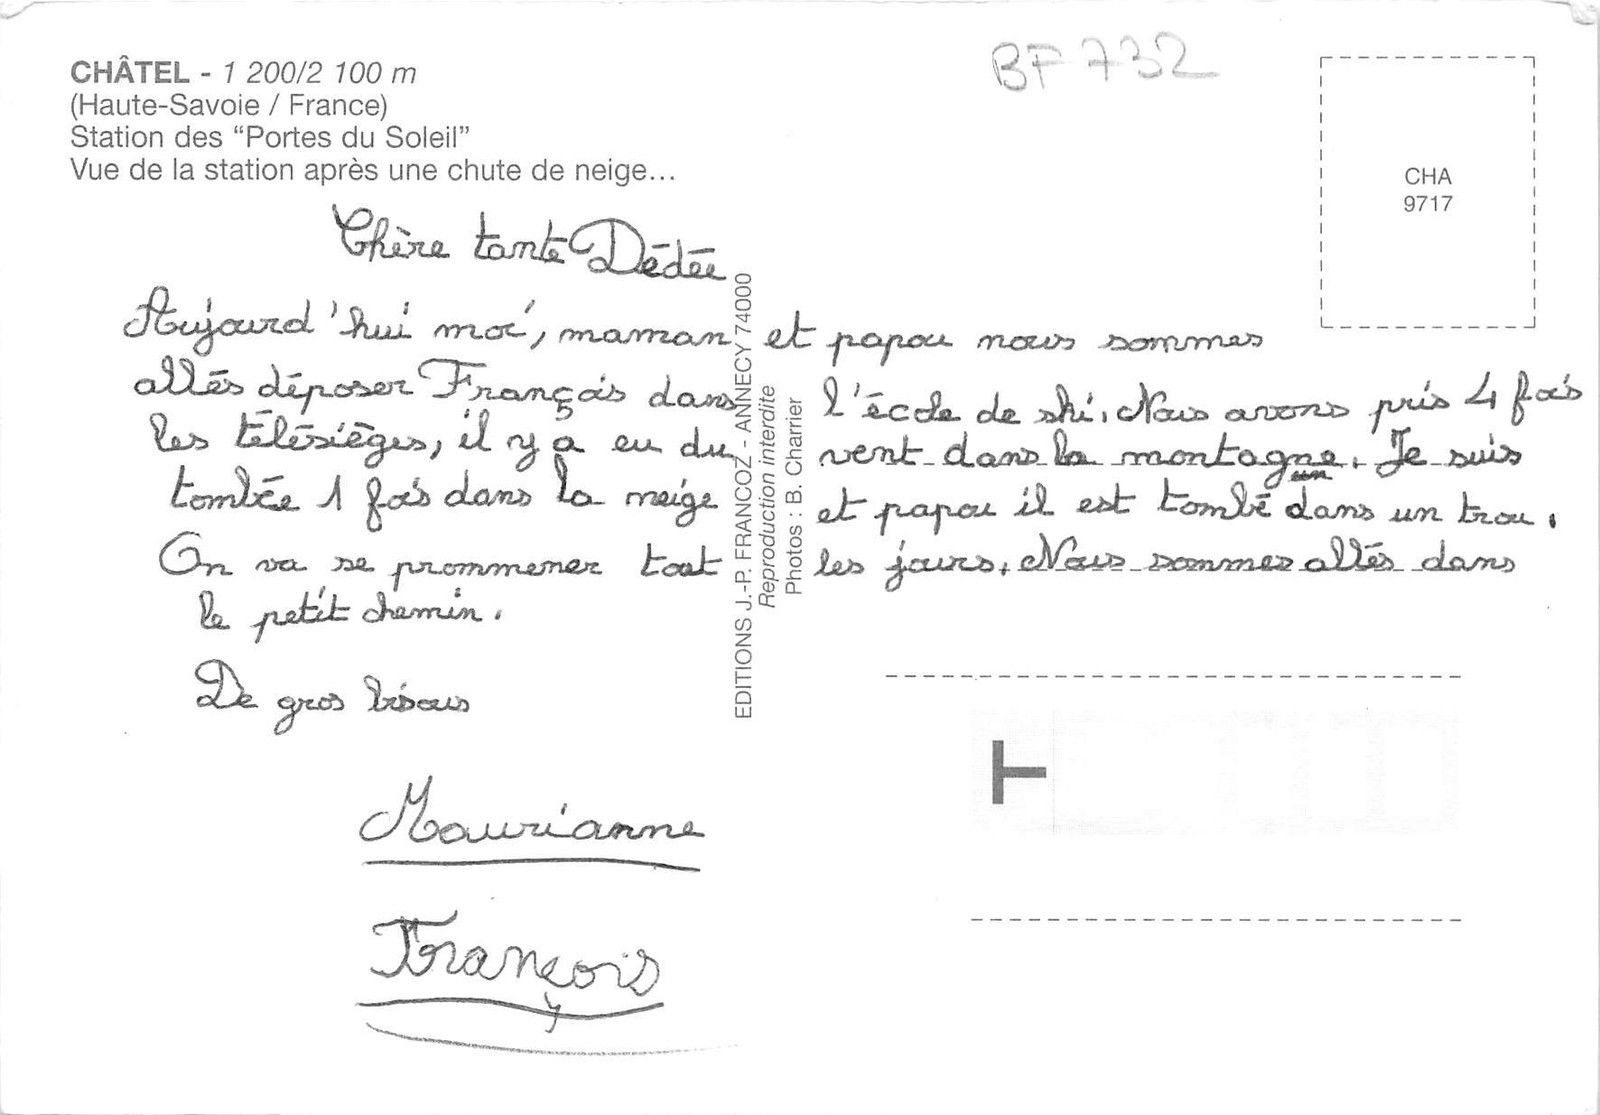 BF 732
CHÂTEL - 1 200/2 100 m
(Haute-Savoie / France)
Station des “Portes du Soleil”
Vue de la station après une chute de neige...
CHA
9717
Chère tante Dédée
Aujourd'hui moi, maman et papou nous sommes
allés déposer François dans l'école de ski. Nous avons pris 4 fois
les télésièges, il y a eu du vent dans la montagne. Je suis
tombée 1 fois dans la neige et papou il est tombé dans un trou.
On va se prommener tout les jours. Nous sommes allés dans
le petit chemin.
De gros bisous
Maurianne
François
EDITIONS J.-P. FRANCOZ - ANNECY 74000
Reproduction interdite
Photos : B. Charrier
T